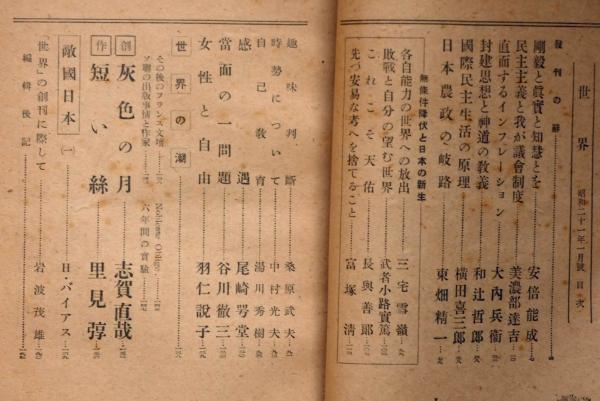 世界 昭和二十一年一月號 目次
發刊の辭
剛毅と眞實と知慧とを 安倍能成
民主主義と我が議會制度 美濃部達吉
直面するインフレーション 大內兵衞
封建思想と神道の敎義 和辻哲郎
國際民主生活の原理 横田喜三郎
日本農政の岐路 東畑精一
無條件降伏と日本の新生
各自能力の世界への放出 三宅雪嶺
敗戰と自分の望む世界 武者小路實篤
これこそ天佑 長與善郎
先づ安易な考へを捨てること 富塚淸
趣味判斷 桑原武夫
時勢について 中村光夫
自己敎育 湯川秀樹
感遇 尾崎咢堂
當面の一問題 谷川徹三
女性と自由 羽仁說子
世界の潮
その後のフランス文壇 Noblesse Oblige
ソ聯の出版事情と作家 六年間の實驗
創作
灰色の月 志賀直哉
短い絲 里見弴
敵國日本(一) H・バイアス
「世界」の創刊に際して 岩波茂雄
編輯後記